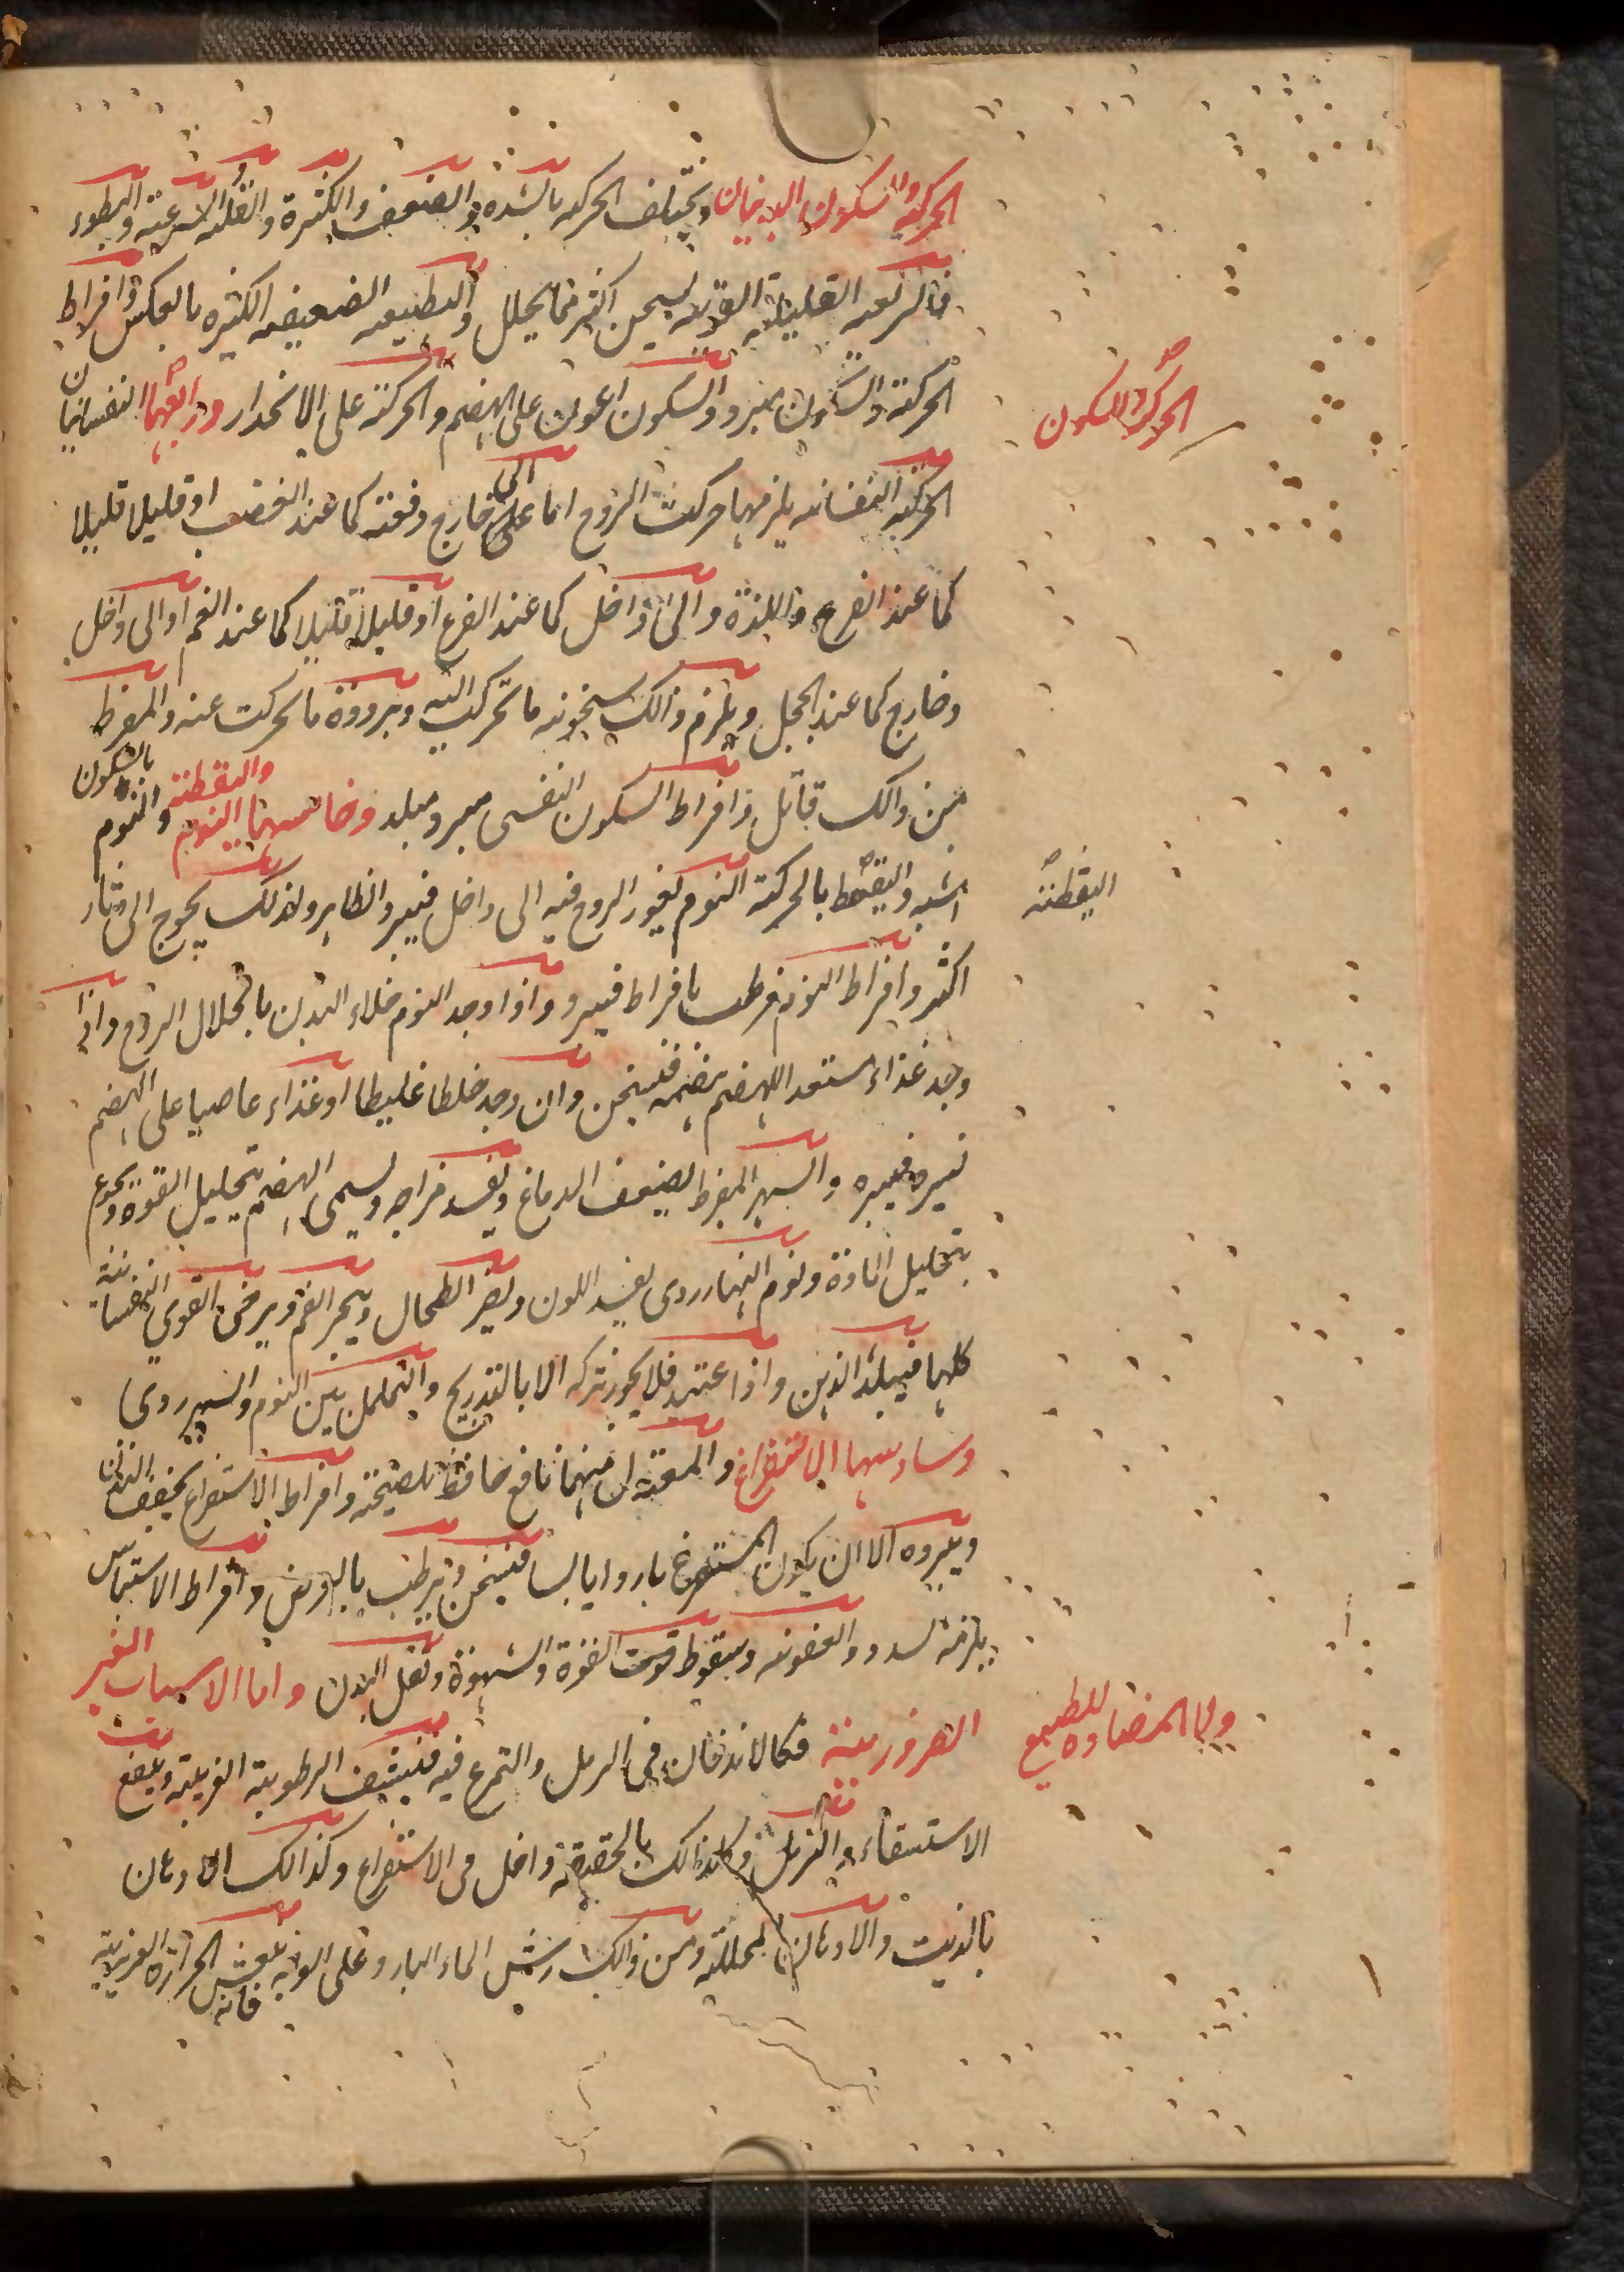 الحركة والسكون البدنيان وتختلف الحركه بالشده والضعف والكثرة والقله والسرعة والبطوء
فالسريعه القليلة القويه يسخن اكثر مما يحلل والبطيئه الضعيفه الكثيره بالعكس وافراط
الحركة والسكون يبرد والسكون اعون على الهضم والحركة على الانحدار ورابعهما النفسانيان
الحركة النفسانيه يلزمها حركت الروح اما الى خارج دفعة كما عند الغضب او قليلا قليلا
كما عند الفرح واللذة والى داخل كما عند الفزع او قليلا قليلا كما عند الغم او الى داخل
وخارج كما عند الخجل ويلزم ذالك سخونه ما تحركت اليه وبرودة ما تحركت عنه والمفرط
من ذالك قاتل وافراط السكون النفسى مبرد مبلد وخامسها النوم واليقظة والنوم بالسكون
اشبه واليقظة بالحركة النوم يغور الروح فيه الى داخل فيبرد الظاهر ولذلك يحوج الى دثار
اكثر وافراط النوم مرطب بافراط فيبرد واذا وجد النوم خلاء البدن بانحلال الروح واذا
وجد غذاء مستعدا للهضم هضمه فيسخن وان وجد خلطا غليظا او غذاء عاصيا على الهضم
نشره فيبرد والسهر المفرط يضعف الدماغ ويفسد مزاجه ويسئ الهضم بتحليل القوة ويجوع
بتحليل المادة ونوم النهار ردى يفسد اللون ويضر الطحال ويبخر الفم ويرخى القوى النفسانية
كلها فيبلد الذهن واذا اعتيد فلا يجوز تركه الا بالتدريج والتململ بين النوم والسهر ردى
وسادسها الاستفراغ والمعتدل منهما نافع حافظ للصحة وافراط الاستفراغ يجفف البدن
ويبرده الا ان يكون المستفرغ باردا يابسا فيسخن ويرطب بالعرض وافراط الاحتباس
يلزمه السدد والعفونه وسقوط القوة والشهوة وثقل البدن واما الاسباب الغير
الضرورية فكالاندفان فى الرمل والتمرغ فيه فينشف الرطوبة الغريبة وينفع
الاستسقاء والترهل وكذالك بالحقيقة داخل فى الاستفراغ وكذالك الادهان
بالزيت والادهان المحللة ومن ذالك رش الماء البارد على الوجه فانه ينعش الحرارة الغريزية
الحركة والسكون
اليقظة
ولا المضاده للطبع